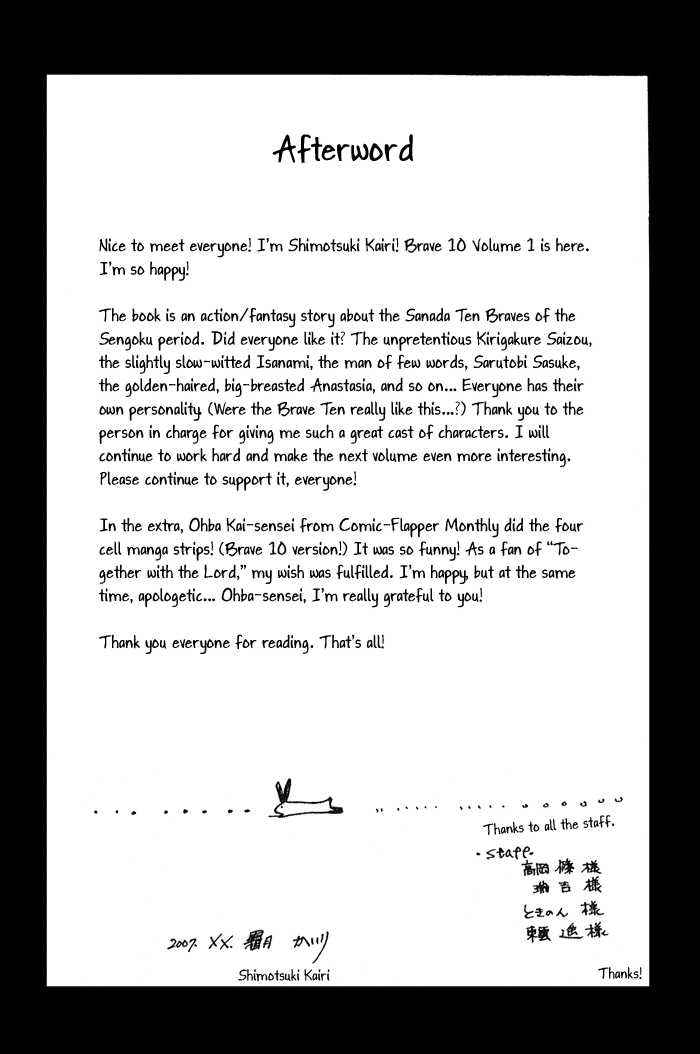 Afterword
Nice to meet everyone! I'm Shimotsuki Kairi! Brave 10 Volume 1 is here.
I'm so happy!
The book is an action/fantasy story about the Sanada Ten Braves of the
Sengoku period. Did everyone like it? The unpretentious Kirigakure Saizou,
the slightly slow-witted Isanami, the man of few words, Sarutobi Sasuke,
the golden-haired, big-breasted Anastasia, and so on... Everyone has their
own personality. (Were the Brave Ten really like this...?) Thank you to the
person in charge for giving me such a great cast of characters. I will
continue to work hard and make the next volume even more interesting.
Please continue to support it, everyone!
In the extra, Ohba Kai-sensei from Comic-Flapper Monthly did the four
cell manga strips! (Brave 10 version!) It was so funny! As a fan of "To-
gether with the Lord," my wish was fulfilled. I'm happy, but at the same
time, apologetic... Ohba-sensei, I'm really grateful to you!
Thank you everyone for reading. That's all!
Thanks to all the staff.
・staff・
高岡 様
吉 様
ときのん 様
様
2007. XX. 霜月 かいり
Shimotsuki Kairi
Thanks!